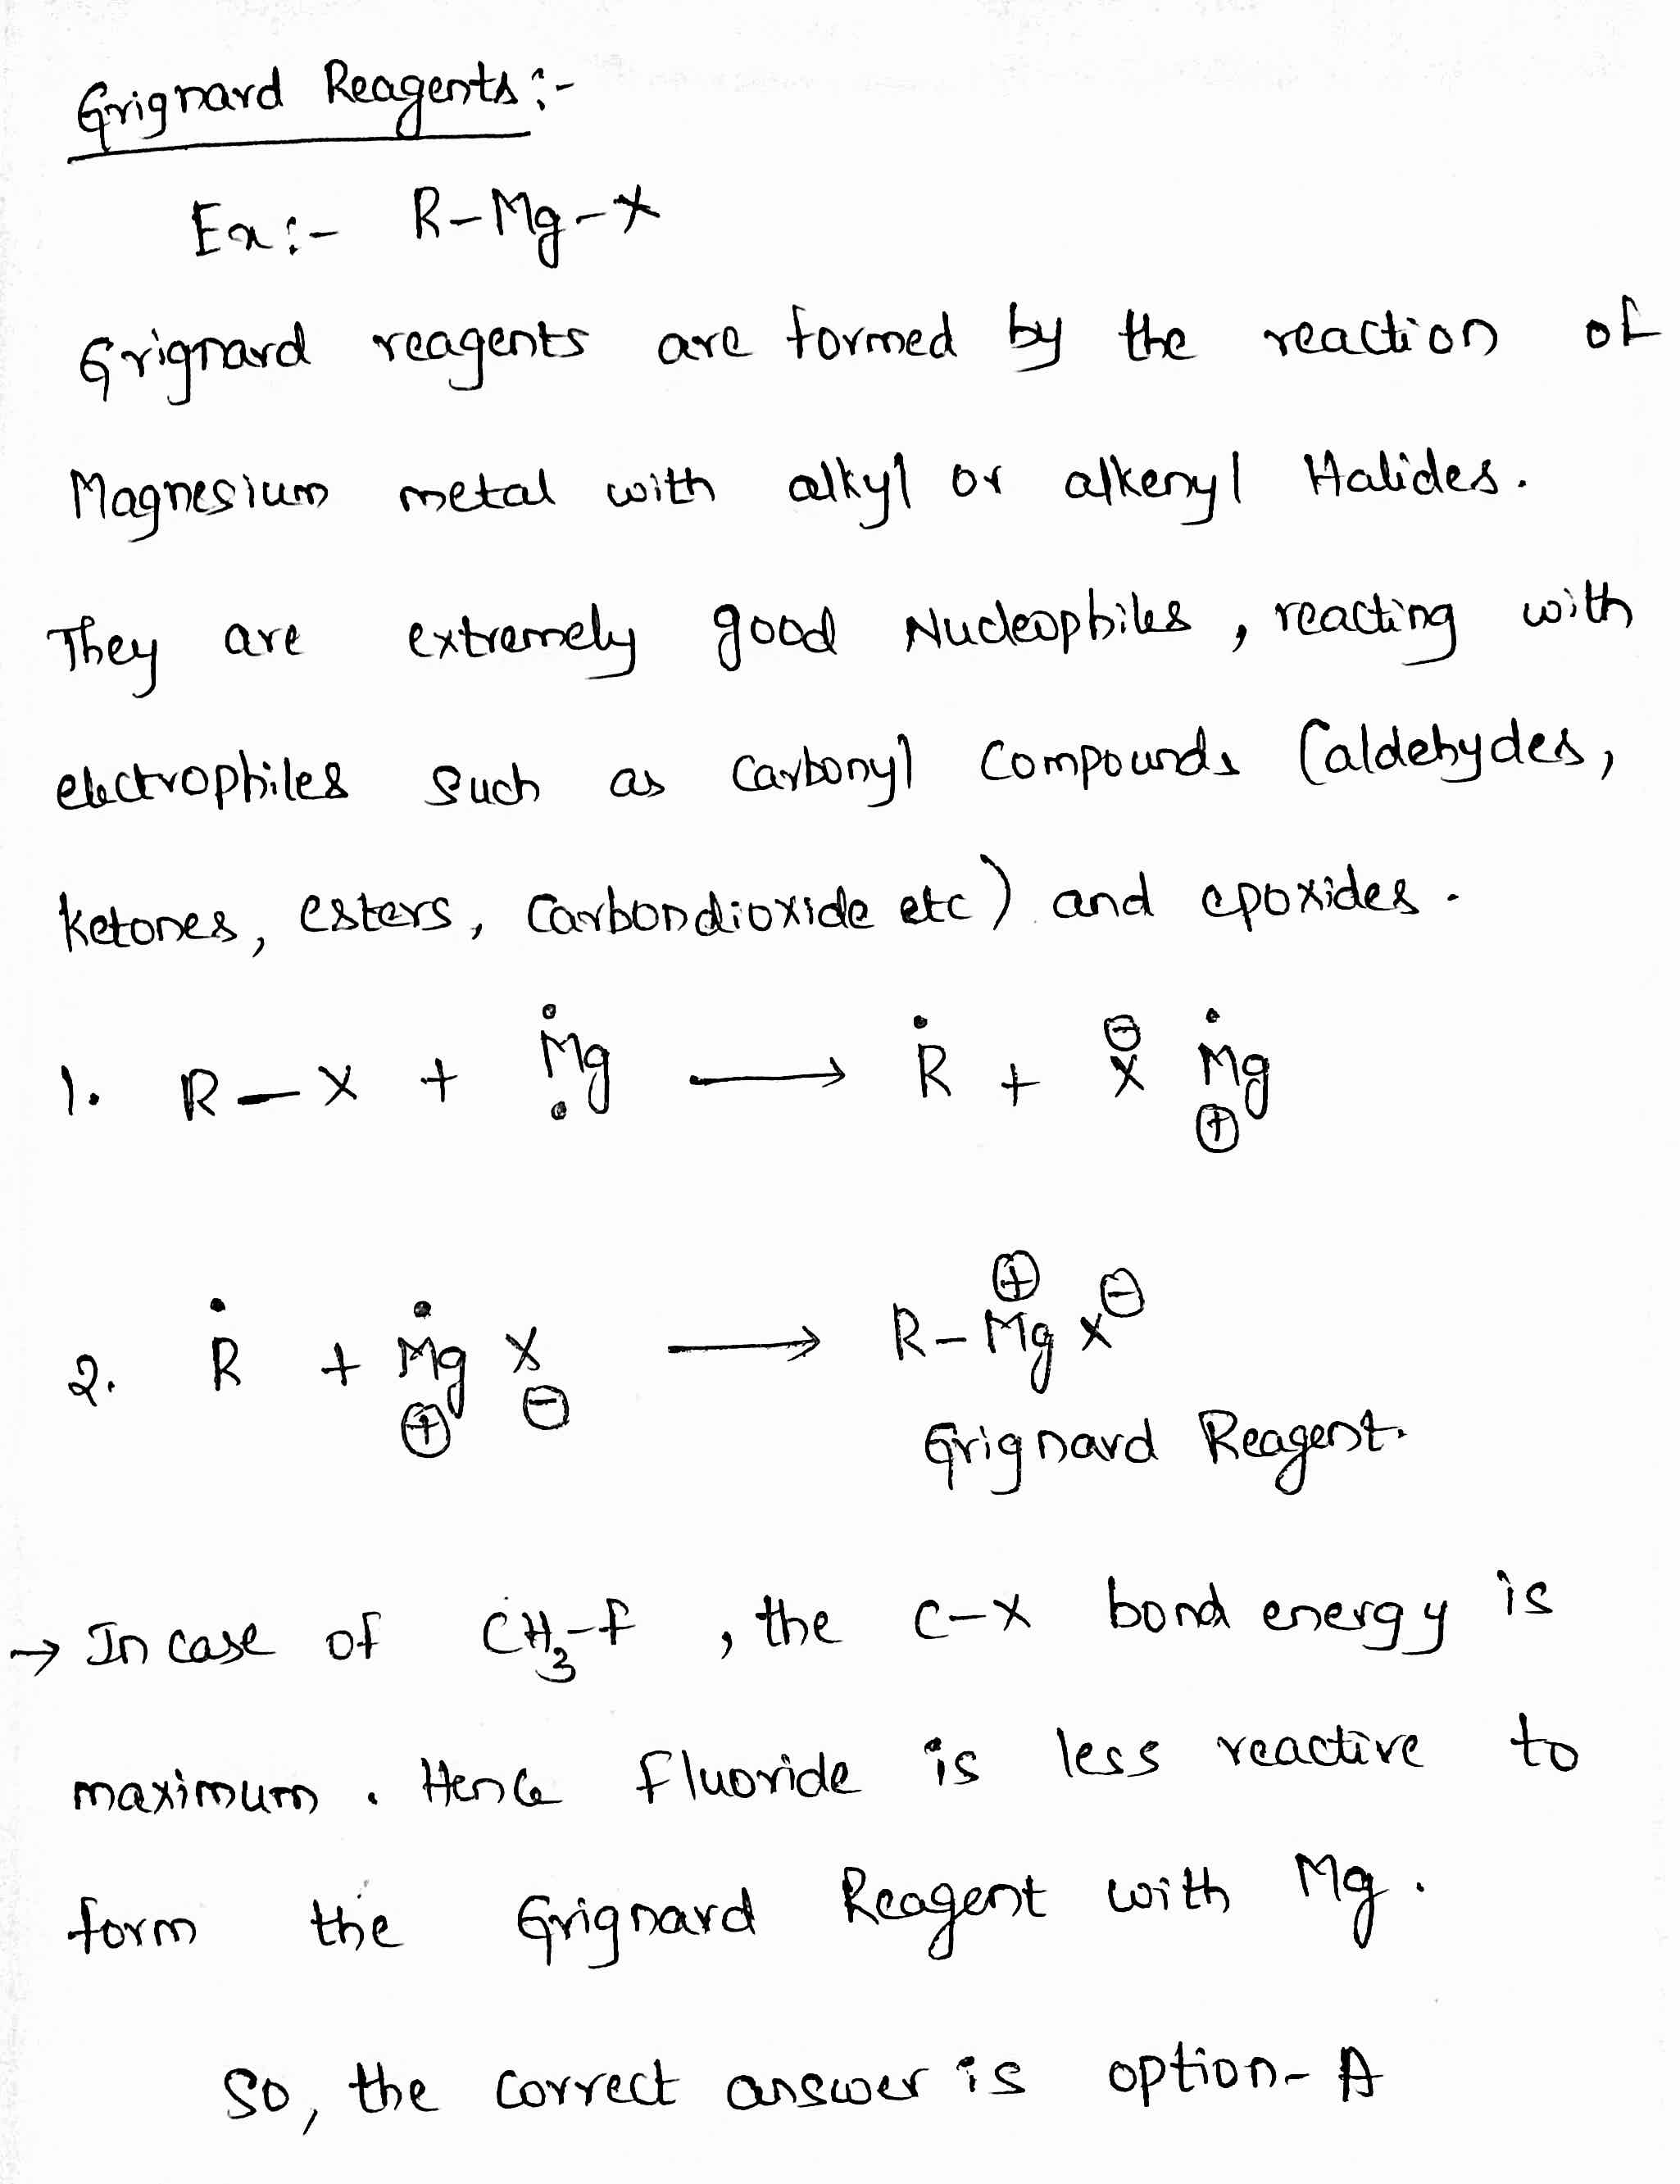 Grignard Reagents:-
Ex:- R-Mg-X
Grignard reagents are formed by the reaction of
Magnesium metal with alkyl or alkenyl Halides.
They are extremely good Nucleophiles, reacting with
electrophiles such as Carbonyl Compounds (aldehydes,
ketones, esters, Carbondioxide etc) and epoxides.
1. R-X + •Mg• → R• + X⊖ •Mg⊕
2. R• + •Mg⊕ X⊖ → R-Mg⊕ X⊖
Grignard Reagent.
→ In case of CH₃-F, the C-X bond energy is
maximum. Hence Fluoride is less reactive to
form the Grignard Reagent with Mg.
So, the correct answer is option-A